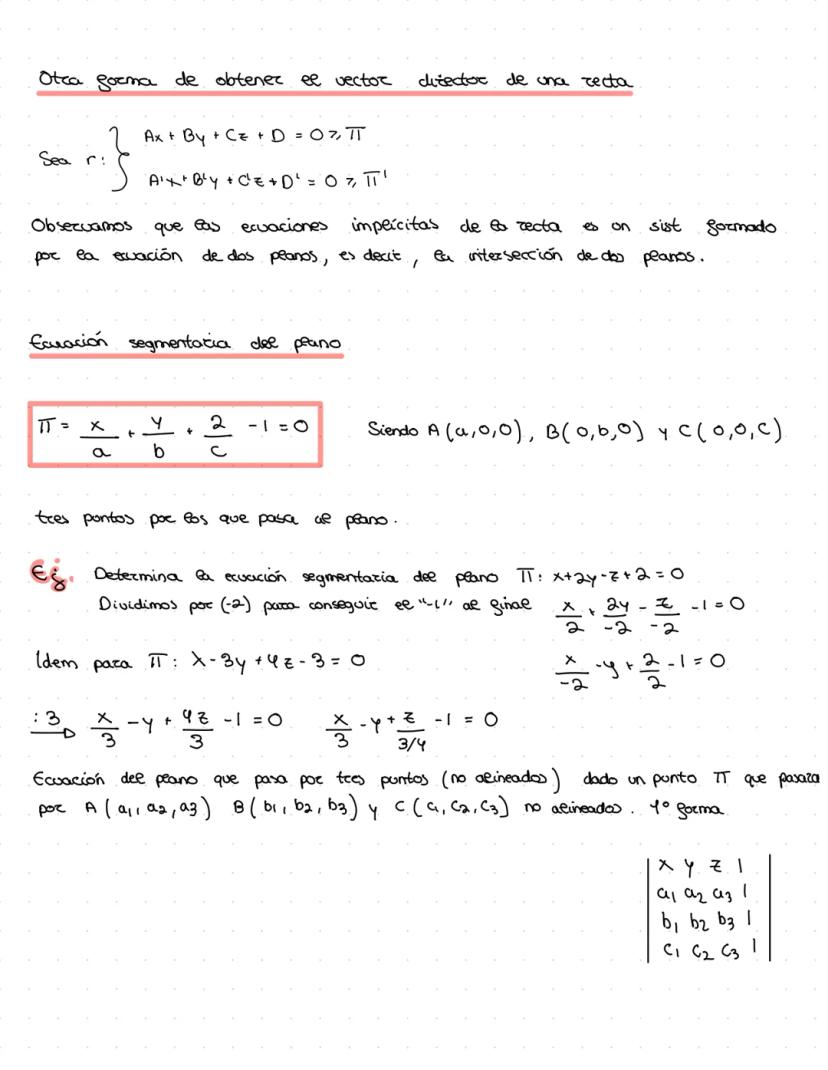 Otra forma de obtener el vector director de una recta
Sea r: { Ax + By + Cz + D = 0 ≥ π
A'x + B'y + C'z + D' = 0 ≥ π'
Observamos que las ecuaciones implícitas de la recta es un sist formado
por la ecuación de dos planos, es decir, la intersección de dos planos.
Ecuación segmentaria del plano
π = x/a + y/b + z/c - 1 = 0 Siendo A(a,0,0), B(0,b,0) y C(0,0,c)
tres puntos por los que pasa el plano.
Ej. Determina la ecuación segmentaria del plano π: x+2y-z+2=0
Dividimos por (-2) para conseguir el "-1" al final x/2 + 2y/-2 - z/-2 - 1 = 0
Idem para π: x-3y+4z-3=0 x/-2 - y + z/2 - 1 = 0
:3 → x/3 - y + 4z/3 - 1 = 0 x/3 - y + z/3/4 - 1 = 0
Ecuación del plano que pasa por tres puntos (no alineados) dado un punto π que pasara
por A(a1, a2, a3) B(b1, b2, b3) y C(c1, c2, c3) no alineados. 1º forma
| x y z 1 |
| a1 a2 a3 1 |
| b1 b2 b3 1 |
| c1 c2 c3 1 |